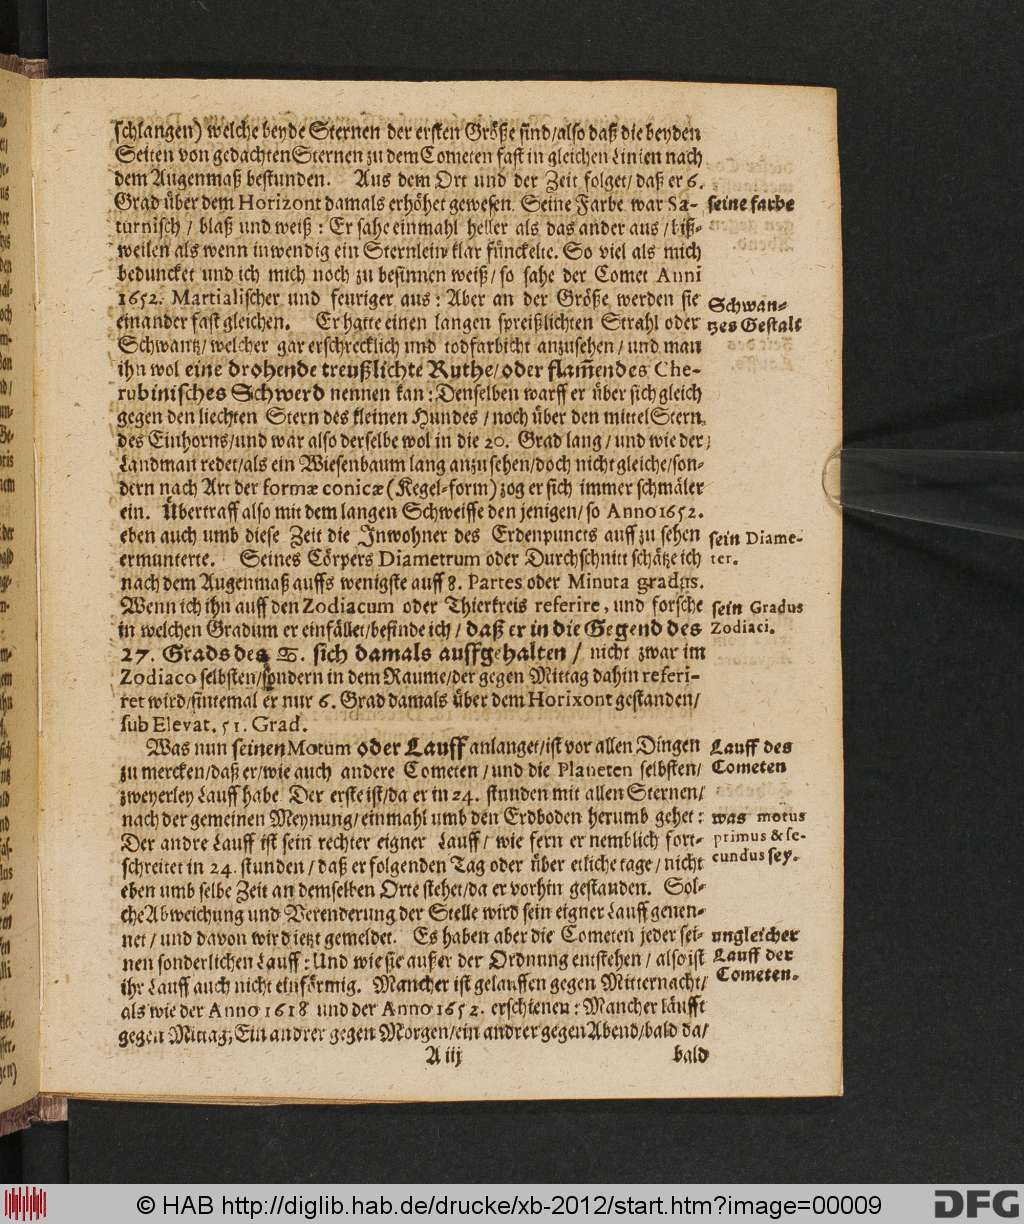 schlangen) welche beyde Sternen der ersten Größe sind/also daß die beyden
Seiten von gedachten Sternen zu dem Cometen fast in gleichen Linien nach
dem Augenmaß bestunden. Aus dem Ort und der Zeit folget/ daß er 6.
Grad über dem Horizont damals erhöhet gewesen. Seine Farbe war Sa-
seine farbe
turnisch / blaß und weiß : Er sahe einmahl heller als das ander aus / biß-
weilen als wenn inwendig ein Sternlein klar fünckelte. So viel als mich
beduncket und ich mich noch zu besinnen weiß / so sahe der Comet Anni
1652. Martialischer und feuriger aus : Aber an der Größe werden sie
Schwan-
einander fast gleichen. Er hatte einen langen spreißlichten Strahl oder
tzes Gestalt
Schwantz/ welcher gar erschrecklich und todfarbicht anzusehen / und man
ihn wol eine drohende treußlichte Ruthe/ oder flam̃endes Che-
rubinisches Schwerd nennen kan : Denselben warff er über sich gleich
gegen den liechten Stern des kleinen Hundes / noch über den mittel Stern
des Einhorns/und war also derselbe wol in die 20. Grad lang / und wie der
Landman redet/als ein Wiesenbaum lang anzusehen/doch nicht gleiche/son-
dern nach Art der formæ conicæ (Kegel-form) zog er sich immer schmäler
ein. Übertraff also mit dem langen Schweiffe den jenigen/ so Anno 1652.
eben auch umb diese Zeit die Inwohner des Erdenpuncts auff zu sehen
sein Diame-
ermunterte. Seines Cörpers Diametrum oder Durchschnitt schätze ich
ter.
nach dem Augenmaß auffs wenigste auff 8. Partes oder Minuta gradus.
Wenn ich ihn auff den Zodiacum oder Thierkreis referire, und forsche
sein Gradus
in welchen Gradum er einfället/befinde ich / daß er in die Gegend des
Zodiaci.
27. Grads des ♌. sich damals auffgehalten / nicht zwar im
Zodiaco selbsten/sondern in dem Raume/der gegen Mittag dahin referi-
ret wird/sintemal er nur 6. Grad damals über dem Horixont gestanden/
sub Elevat. 51. Grad.
Was nun seinen Motum oder Lauff anlanget/ist vor allen Dingen
Lauff des
zu mercken/daß er/wie auch andere Cometen / und die Planeten selbsten/
Cometen
zweyerley Lauff habe Der erste ist/da er in 24. stunden mit allen Sternen/
nach der gemeinen Meynung/einmahl umb den Erdboden herumb gehet :
was motus
Der andre Lauff ist sein rechter eigner Lauff/ wie fern er nemblich fort-
primus & se-
schreitet in 24. stunden / daß er folgenden Tag oder über etliche tage / nicht
cundus sey.
eben umb selbe Zeit an demselben Orte stehet/da er vorhin gestanden. Sol-
che Abweichung und Verenderung der Stelle wird sein eigner Lauff genen-
net / und davon wird jetzt gemeldet. Es haben aber die Cometen jeder sei-
ungleicher
nen sonderlichen Lauff : Und wie sie außer der Ordnung entstehen / also ist
Lauff der
ihr Lauff auch nicht einförmig. Mancher ist gelauffen gegen Mitternacht/
Cometen.
als wie der Anno 1618 und der Anno 1652. erschienen : Mancher läufft
gegen Mittag, Ein andrer gegen Morgen/ein andrer gegen Abend/bald da/
A iij
bald
© HAB http://diglib.hab.de/drucke/xb-2012/start.htm?image=00009
DFG